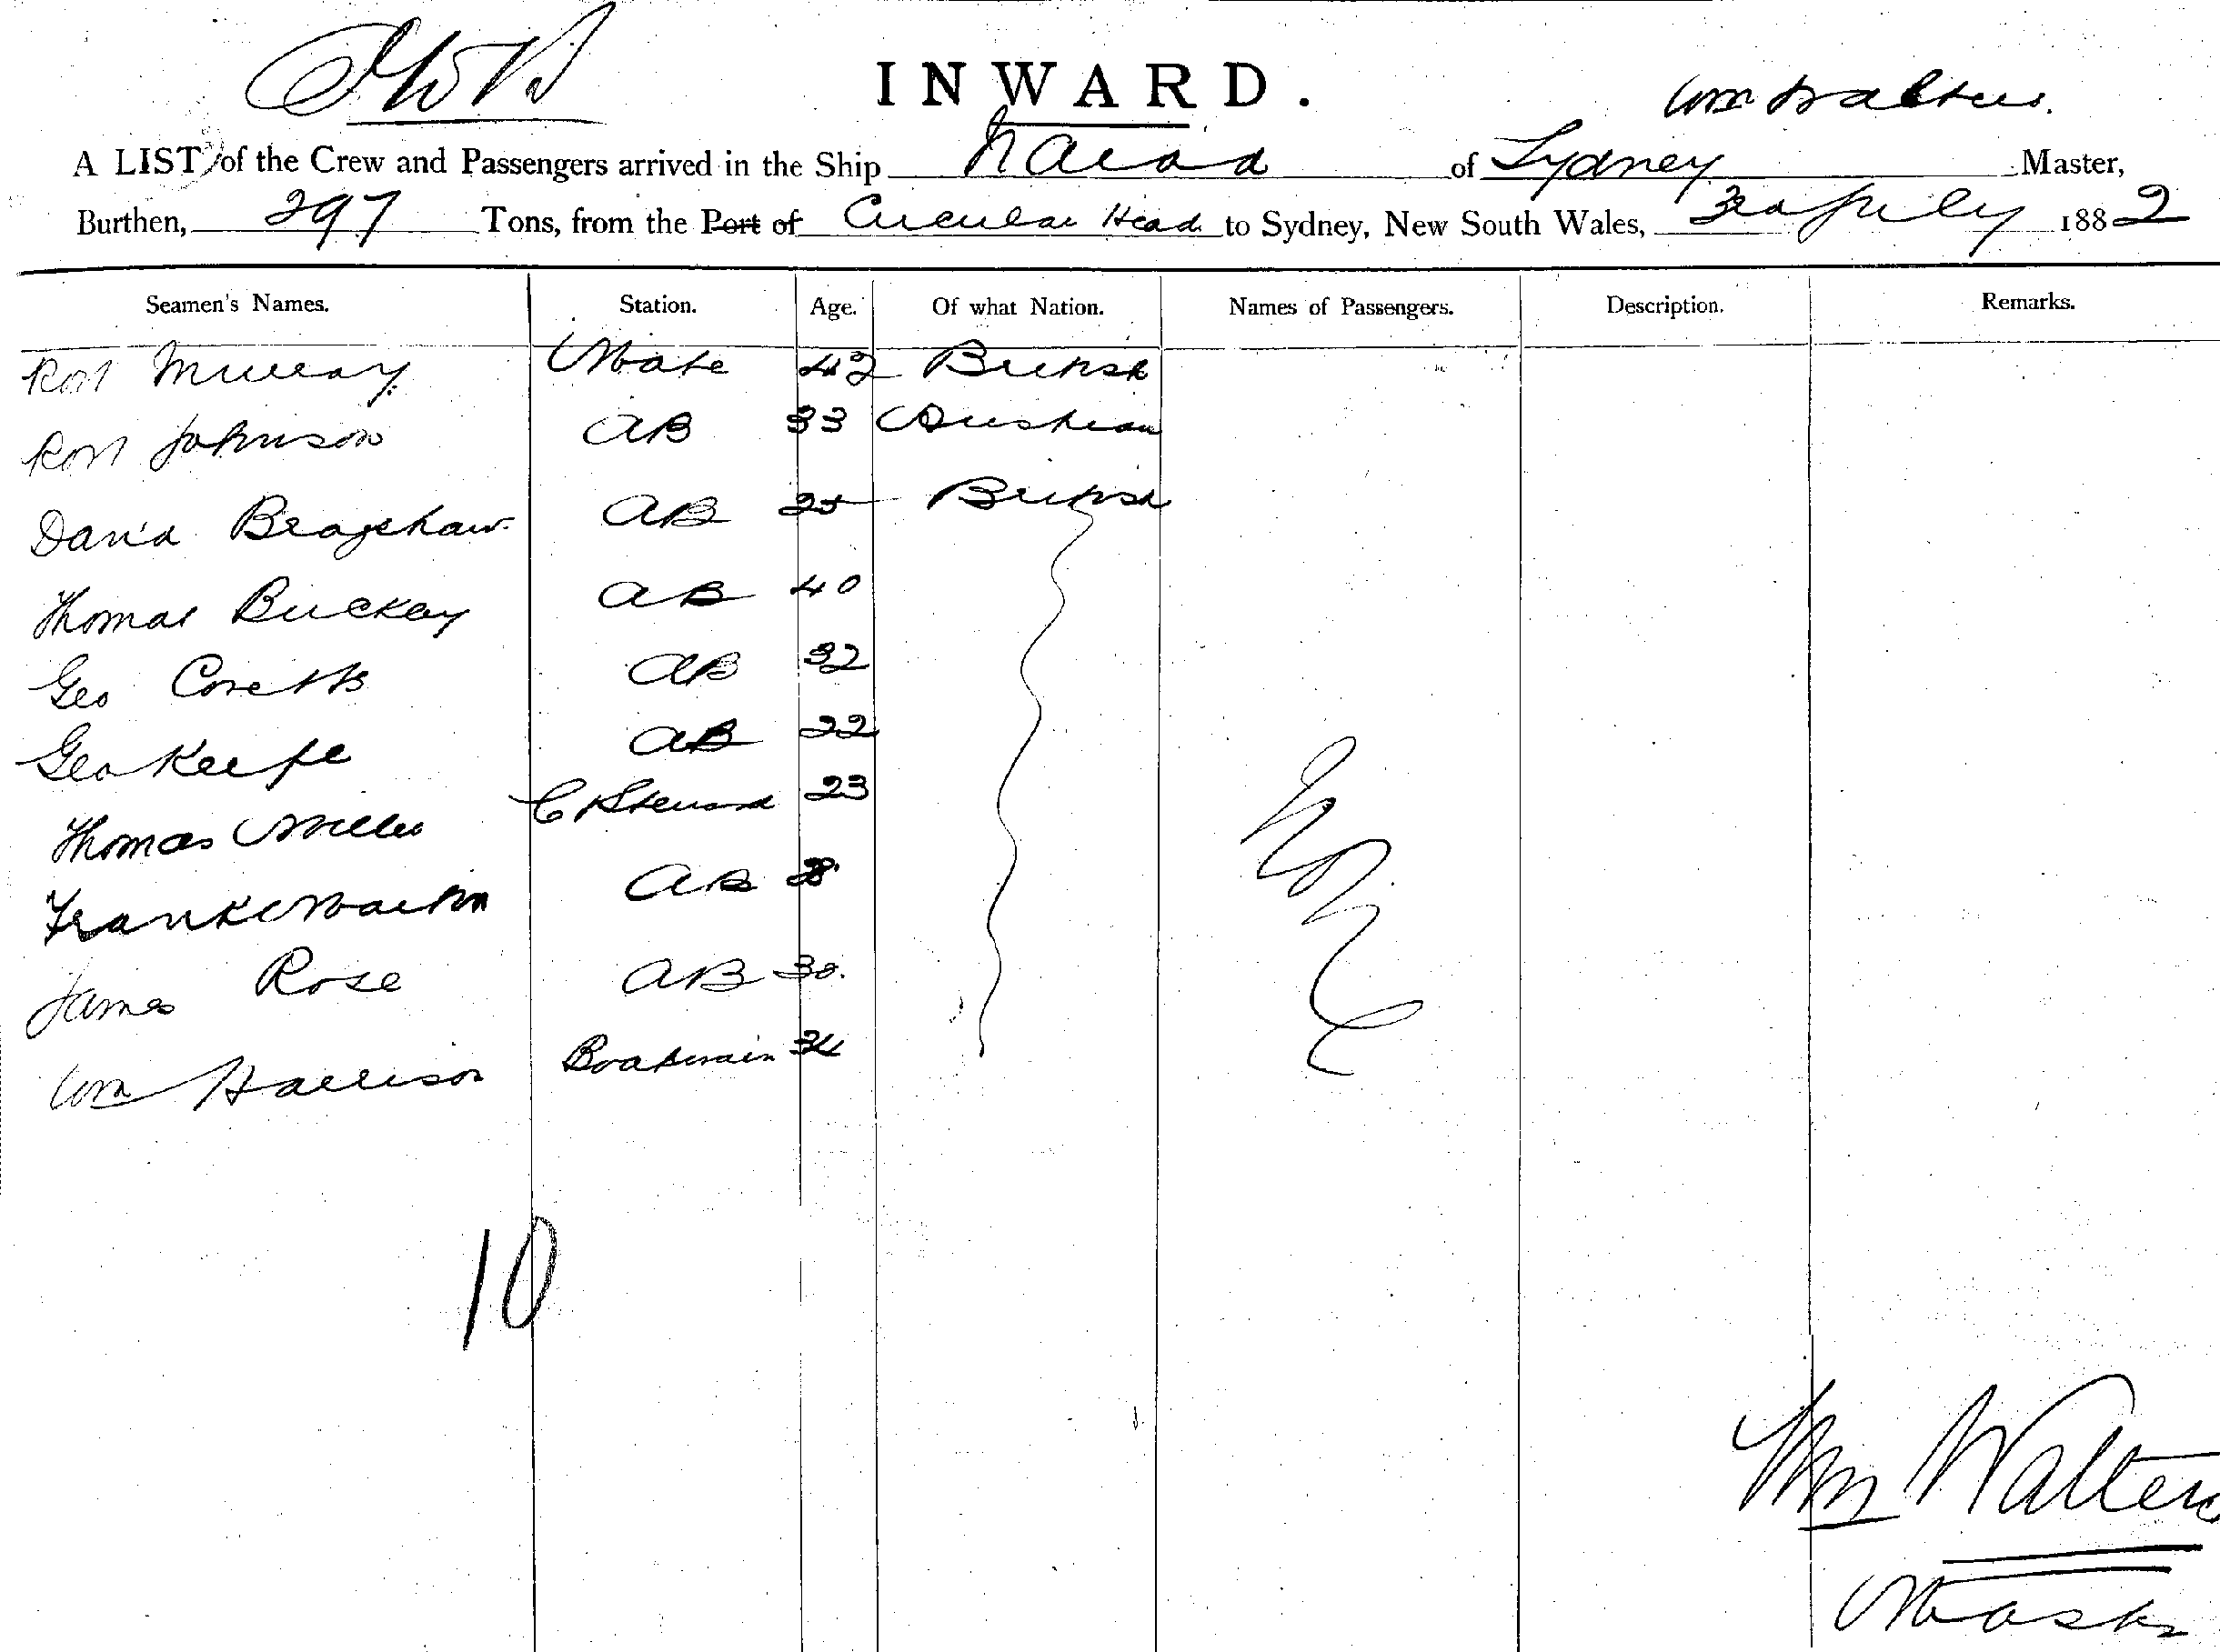 INWARD.
Wm Walters.
A LIST of the Crew and Passengers arrived in the Ship Naiad of Sydney Master,
Burthen, 297 Tons, from the Port of Circular Head to Sydney, New South Wales, 3rd July 1882
Seamen's Names. Station. Age. Of what Nation. Names of Passengers. Description. Remarks.
Robt Murray Mate 42 British
Robt Johnson AB 33 Austrian
David Bragshaw AB 25 British
Thomas Buckey AB 40
Geo AB 32
Geo Keefe AB 22
Thomas Miller C & Steward 23
Frank Martin AB
James Rose AB 30.
Wm Harrison Boatswain 34
Nil
10
Wm Walters
Master